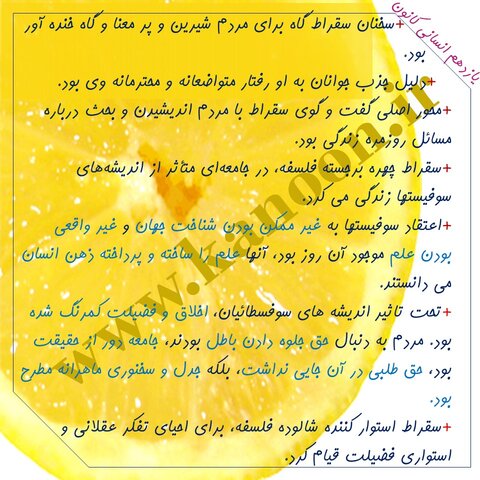 یازدهم انسانی کانون
+سخنان سقراط گاه برای مردم شیرین و پر معنا و گاه خنده آور
بود.
+دلیل جذب جوانان به او رفتار متواضعانه و محترمانه وی بود.
+محور اصلی گفت و گوی سقراط با مردم اندیشیدن و بحث درباره
مسائل روزمره زندگی بود.
+سقراط چهره برجسته فلسفه، در جامعه‌ای متأثر از اندیشه‌های
سوفیستها زندگی می کرد.
+اعتقاد سوفیستها به غیر ممکن بودن شناخت جهان و غیر واقعی
بودن علم موجود آن روز بود، آنها علم را ساخته و پرداخته ذهن انسان
می دانستند.
+تحت تاثیر اندیشه های سوفسطائیان، اخلاق و فضیلت کمرنگ شده
بود. مردم به دنبال حق جلوه دادن باطل بودند، جامعه دور از حقیقت
بود، حق طلبی در آن جایی نداشت، بلکه جدل و سخنوری ماهرانه مطرح
بود.
+سقراط استوار کننده شالوده فلسفه، برای احیای تفکر عقلانی و
استواری فضیلت قیام کرد.
www.kanoon.ir